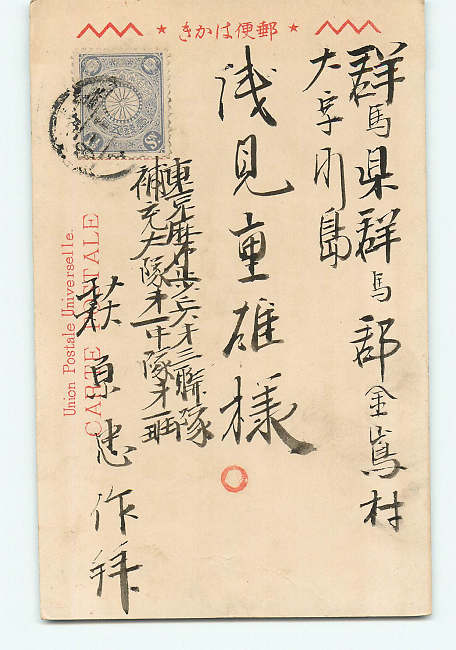 郵便はかき
群馬県群馬郡金嶌村
大字川島
浅見重雄様
東京麻布歩兵才三聯隊
補充大隊才一中隊才一班
萩原忠作拝
Union Postale Universelle.
CARTE POSTALE